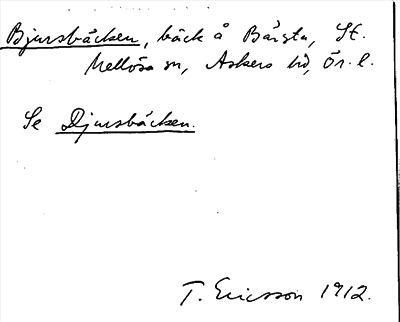 Bjursbäcken, bäck å Bärsta, St.
Mellösa sn, Askers hd, Ör. l.
Se Djursbäcken.
T. Ericsson 1912.